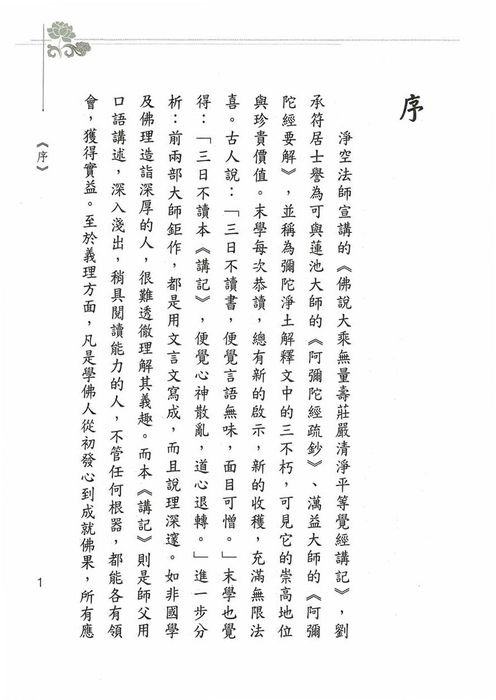 序
淨空法師宣講的《佛說大乘無量壽莊嚴清淨平等覺經講記》，劉
承符居士譽為可與蓮池大師的《阿彌陀經疏鈔》、澫益大師的《阿彌
陀經要解》，並稱為彌陀淨土解釋文中的三不朽，可見它的崇高地位
與珍貴價值。末學每次恭讀，總有新的啟示，新的收穫，充滿無限法
喜。古人說：「三日不讀書，便覺言語無味，面目可憎。」末學也覺
得：「三日不讀本《講記》，便覺心神散亂，道心退轉。」進一步分
析：前兩部大師鉅作，都是用文言文寫成，而且說理深邃。如非國學
及佛理造詣深厚的人，很難透徹理解其義趣。而本《講記》則是師父用
口語講述，深入淺出，稍具閱讀能力的人，不管任何根器，都能各有領
會，獲得實益。至於義理方面，凡是學佛人從初發心到成就佛果，所有應
《序》
1